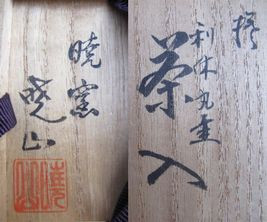 摸
利休丸壷
茶入
暁窯
暁山